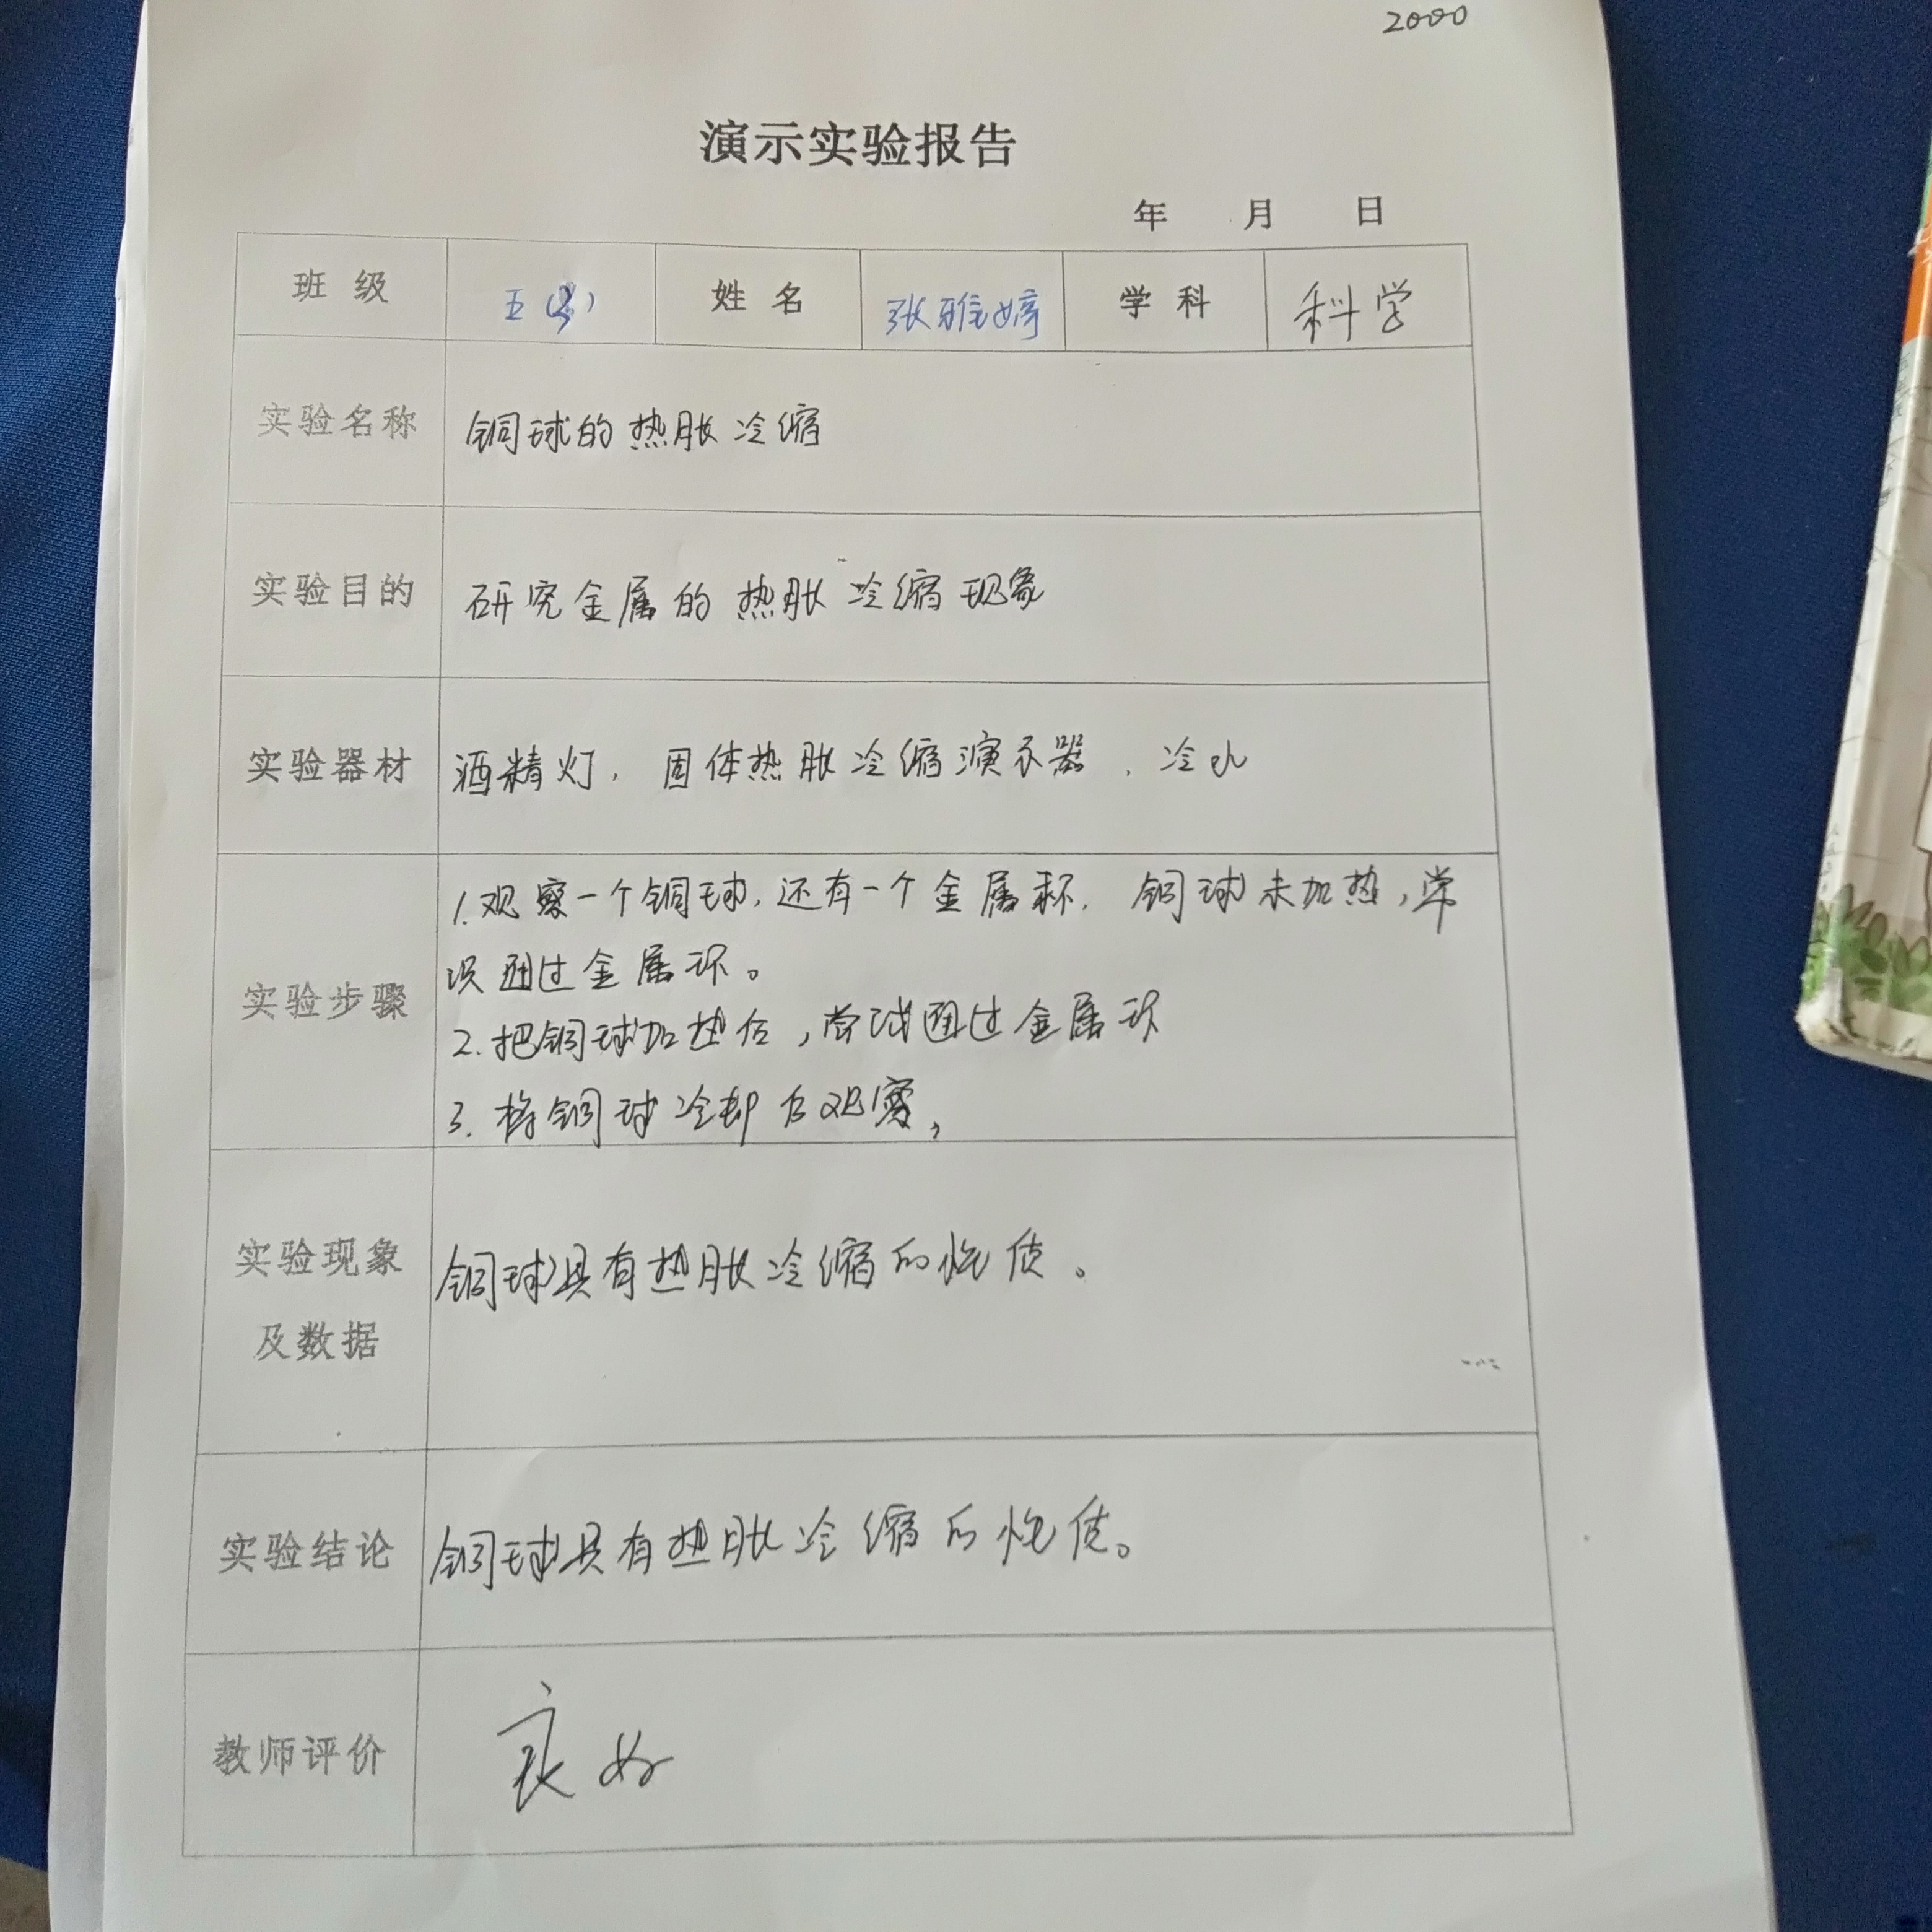 2000
演示实验报告
年 月 日
班级 五 姓名 张雅婷 学科 科学
实验名称 铜球的热胀冷缩
实验目的 研究金属的热胀冷缩现象
实验器材 酒精灯，固体热胀冷缩演示器，冷水
实验步骤
1.观察一个铜球，还有一个金属环，铜球未加热，尝
试通过金属环。
2.把铜球加热后，尝试通过金属环
3.将铜球冷却后观察，
实验现象
及数据
铜球具有热胀冷缩的性质。
实验结论 铜球具有热胀冷缩的性质。
教师评价 良好